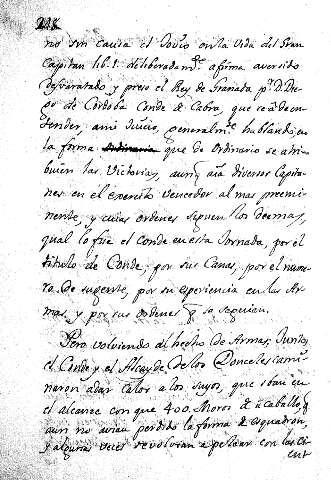 228
no sin causa el Jovio en la vida del Gran
Capitan lib. 1. deliberadamte. afirma aver sido
desvaratado, y preso el Rey de Granada pr. D. Die-
go de Cordoba Conde de Cabra, que se ha de en-
tender, a mi Juicio, generalmte. hablando, en
la forma que de Ordinario se atri-
buien las Victorias, aunq aia diversos Capita-
nes en el exercito vencedor al mas preemi-
nente, y cuias ordenes siguen los demas,
qual lo fue el Conde en esta Jornada, por el
titulo de Conde, por sus Canas, por el nume-
ro de su gente, por su experiencia en las Ar-
mas, y por sus ordenes q se seguian.
Pero volviendo al hecho de Armas, Juntos
el Conde y el Alcayde de los Donceles cami-
naron a dar calor a los suyos, que iban en
el alcance con que 400 Moros de a caballo, q
aun no avian perdido la forma de esquadron,
y algunas veces se volvian a pelear con los Ci-
ent